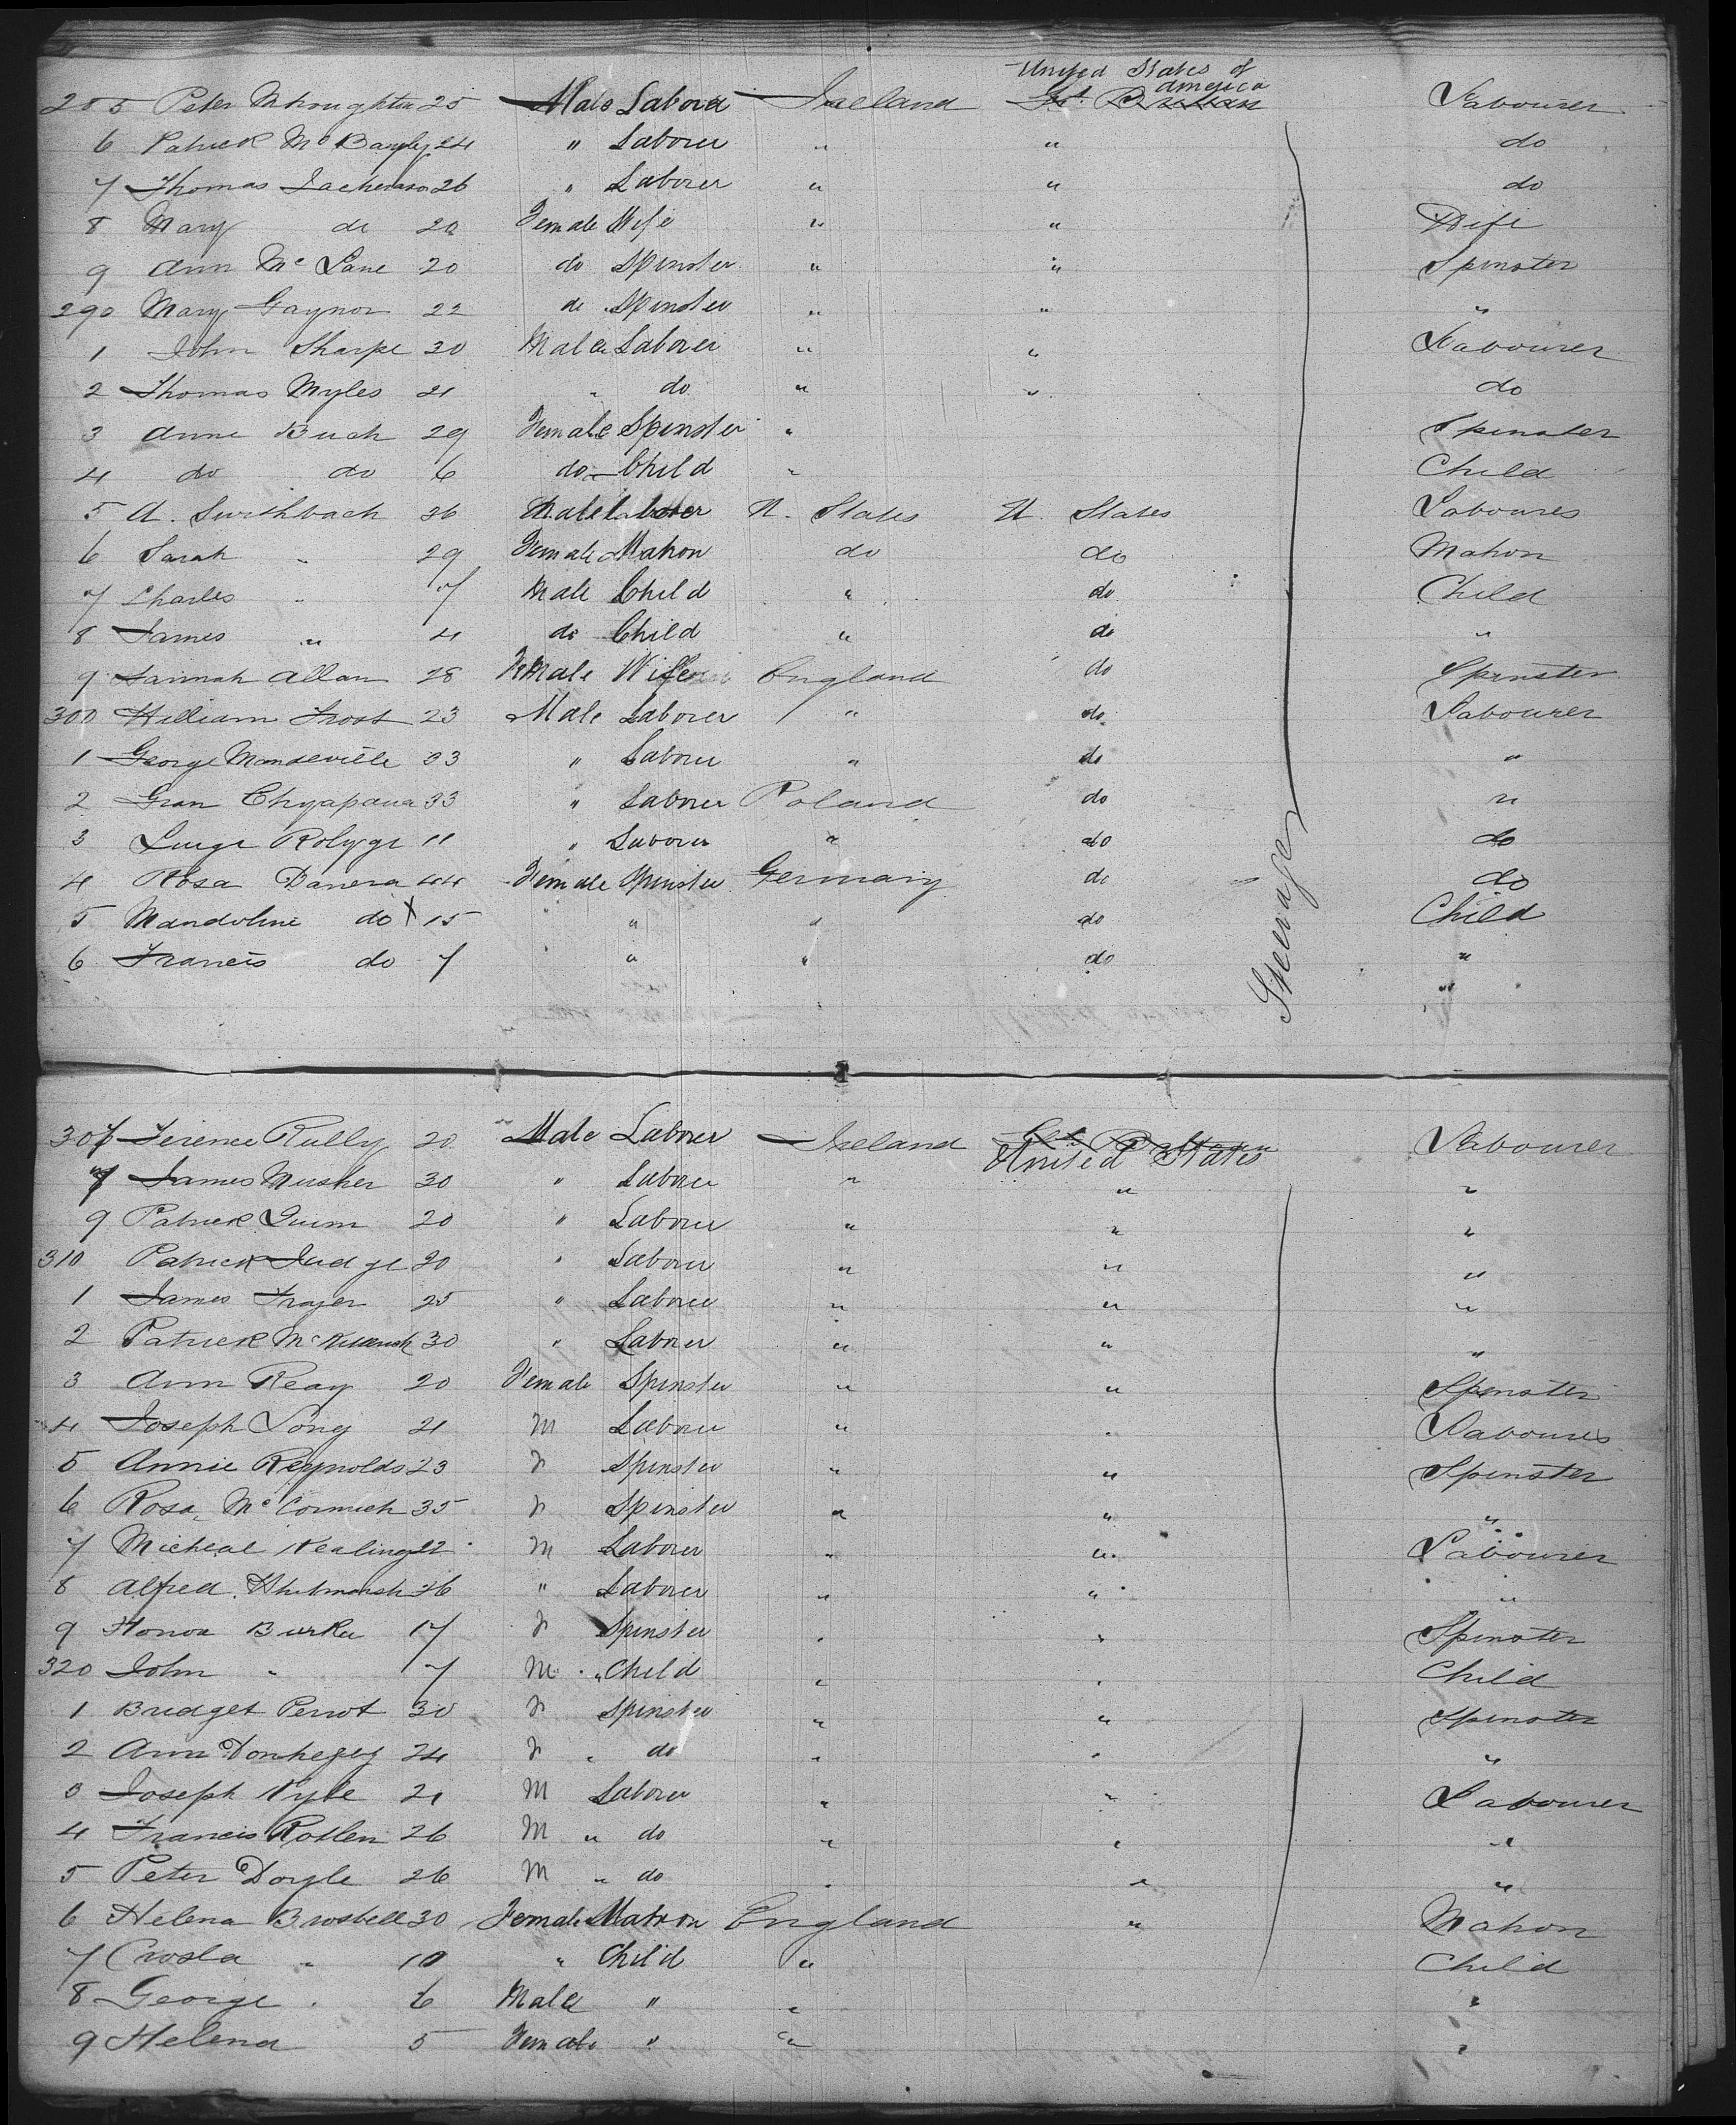 United States of
America
285 Peter 25 Male Laborer Ireland Gt. Britain Labourer
6 Patrick Mc 24 " Laborer " " do
7 Thomas 26 " Laborer " " do
8 Mary do 20 Female Wife " " Wife
9 Ann Mc Lane 20 do Spinster " " Spinster
290 Mary Gaynor 22 do Spinster " " "
1 John Sharpe 30 Male Laborer " " Labourer
2 Thomas Myles 21 " do " " do
3 Anne 29 Female Spinster " Spinster
4 do do 6 do Child " Child
5 A. 36 Male Laborer U. States U. States Labourer
6 Sarah " 29 Female Matron do do Matron
7 Charles " 7 Male Child " do Child
8 James " 4 do Child " do "
9 Hannah Allan 28 Female Wife England do Spinster
300 William Frost 23 Male Laborer " do Labourer
1 George Mandeville 33 " Laborer " do "
2 33 " Laborer Poland do "
3 11 " Laborer " do do
4 Rosa 44 Female Spinster Germany do do
5 Mandoline do X 15 " " " do Child
6 Francis do 7 " " do "
"
Steerage
307 Terence Rully 20 Male Laborer Ireland Gt. Britain Labourer
United States
James Musher 30 " Laborer " " "
9 Patrick Quinn 20 " Laborer " " "
310 Patrick Judge 20 " Laborer " " "
1 James 25 " Laborer " " "
2 Patrick 30 " Laborer " " "
3 Ann Reay 20 Female Spinster " " Spinster
4 Joseph Long 21 M Laborer " " Labourer
5 Annie Reynolds 23 F Spinster " " Spinster
6 Rosa Mc Cormick 35 F Spinster " " "
7 Micheal Nealing 22 M Laborer " " Labourer
8 Alfred 36 " Laborer " " "
9 Honor Burke 17 F Spinster " " Spinster
320 John " 7 M " Child " " Child
1 Bridget Perrot 30 F Spinster " " Spinster
2 Ann 24 F " do " " "
3 Joseph 21 M Laborer " " Labourer
4 Francis 26 M " do " " "
5 Peter Doyle 26 M " do " " "
6 Helena 30 Female Matron England " Matron
7 " 10 " Child " Child
8 George " 6 Male " " "
9 Helena 5 Female " " "